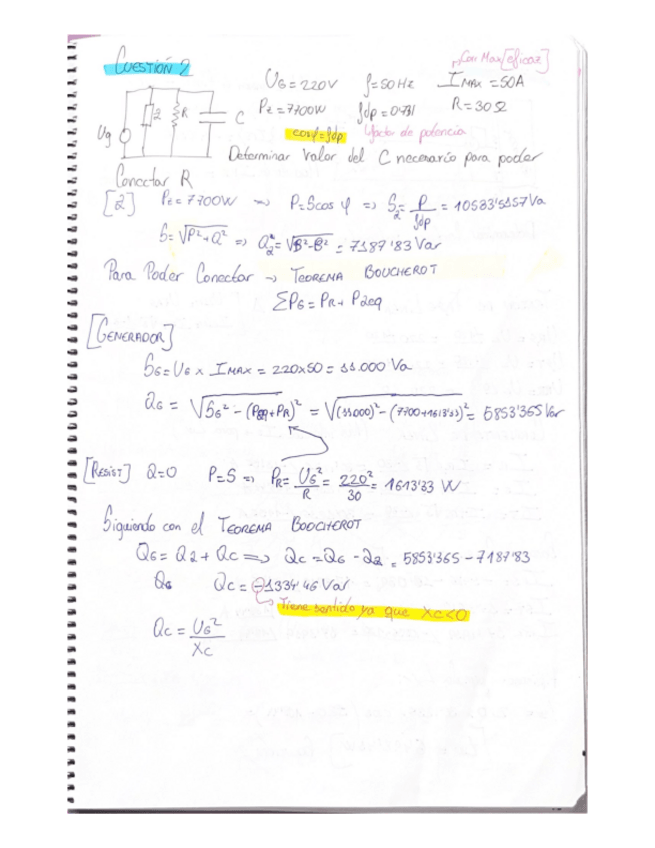 Cuestión 2
Cor Max [eficaz]
UG = 220V f = 50Hz IMAX = 50A
Pz = 7700W fdp = 0'731 R = 30Ω
cosφ = fdp factor de potencia
Z R C
Ug
Determinar Valor del C necesario para poder
Conectar R
[2] Pz = 7700W → P = S cos φ => S2 = P/fdp = 10533'5157 Va
S = √P²+Q² => Q2 = √S²-P² = 7187'83 Var
Para Poder Conectar → TEOREMA BOUCHEROT
ΣPG = PR + P2eq
[GENERADOR]
SG = UG x IMAX = 220x50 = 11.000 Va
QG = √SG² - (P2+PR)² = √(11000)² - (7700+1613'33)² = 5853'365 Var
[RESIST] Q=0 P=S => PR = UG²/R = 220²/30 = 1613'33 W
Siguiendo con el TEOREMA BOOCHEROT
QG = Q2 + QC => QC = QG - Q2 = 5853'365 - 7187'83
QG QC = -1334'46 Var
Tiene sentido ya que Xc<0
QC = UG²/XC